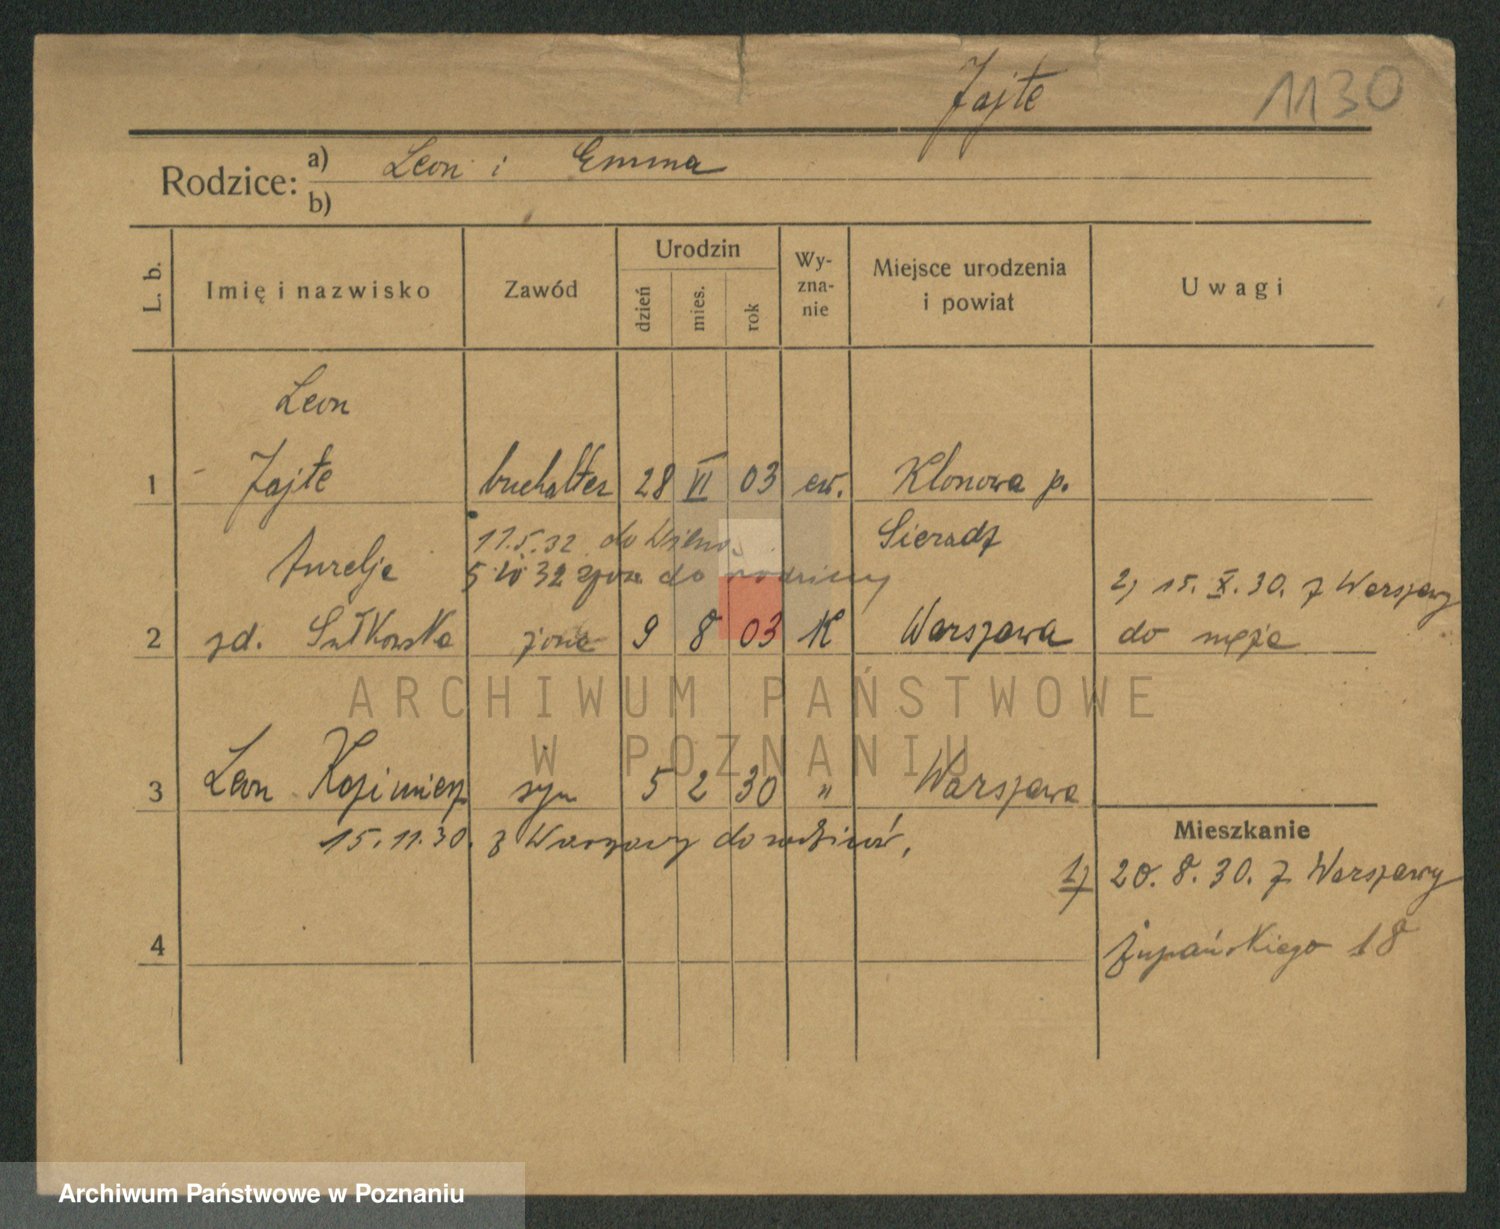 Jajte 1130
Rodzice: a) Leon i Emma
b)
L. b. Imię i nazwisko Zawód Urodzin dzień mies. rok Wy-zna-nie Miejsce urodzenia i powiat Uwagi
Leon
1 Jajte buchalter 28 VI 03 ew. Klonowa p.
17.5.32 do Wilna Sieradz
Aurelja 5 32 do rodziny 2) 15. X. 30. z Warszawy
2 zd. Sułkowska żona 9 8 03 K Warszawa do męża
ARCHIWUM PAŃSTWOWE
W POZNANIU
3 Leon Kazimierz syn 5 2 30 " Warszawa
15.11.30. z Warszawy do rodziców. Mieszkanie
1) 20. 8. 30. z Warszawy
4 Żupańskiego 18
Archiwum Państwowe w Poznaniu